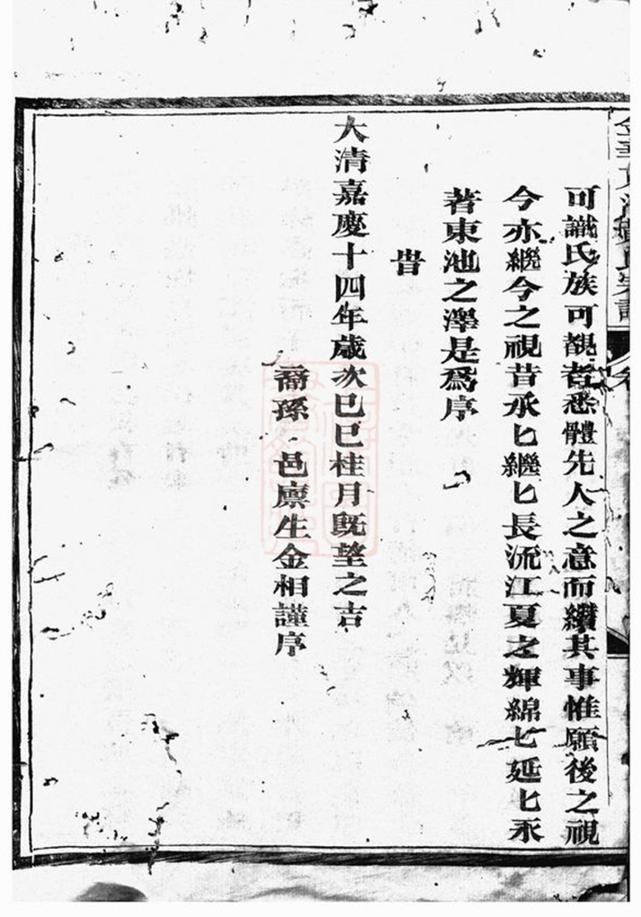 可識氏族可觀者悉體先人之意而纘其事惟願後之視
今亦繼今之視昔承匕繼匕長流江夏之輝綿匕延匕永
著東池之澤是爲序
旹
大清嘉慶十四年歲次己巳桂月既望之吉
裔孫 邑廪生金相謹序